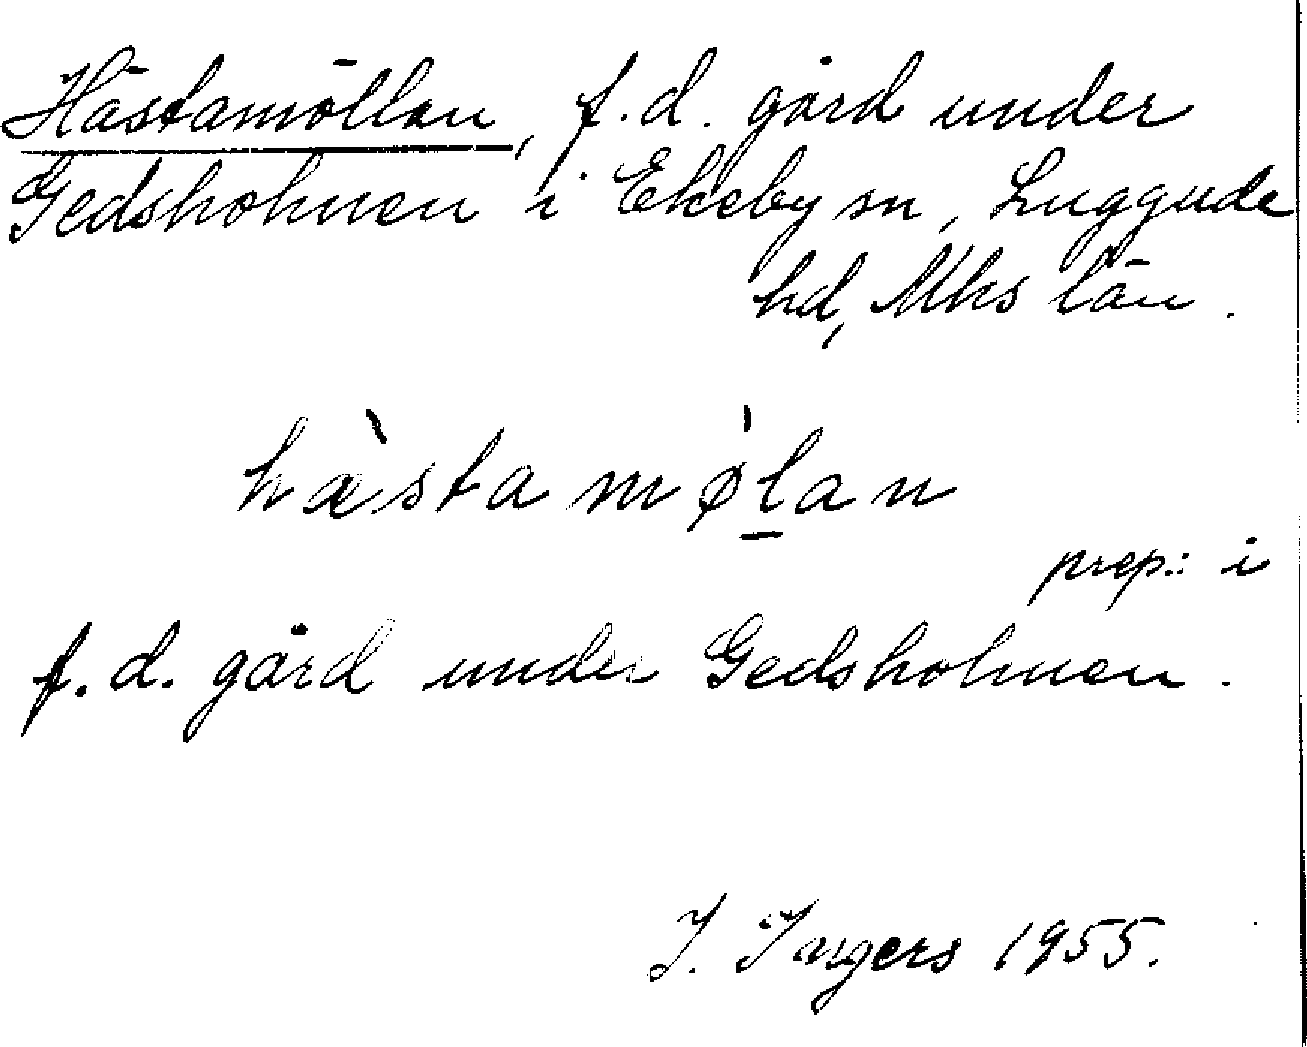 Hästamöllan, f.d. gård under
Gedsholmen i Ekeby sn, Luggude
hd, Mhs län.
hæ̀stamø̀l̠an
prep.: i
f.d. gård under Gedsholmen.
I. Ingers 1955.